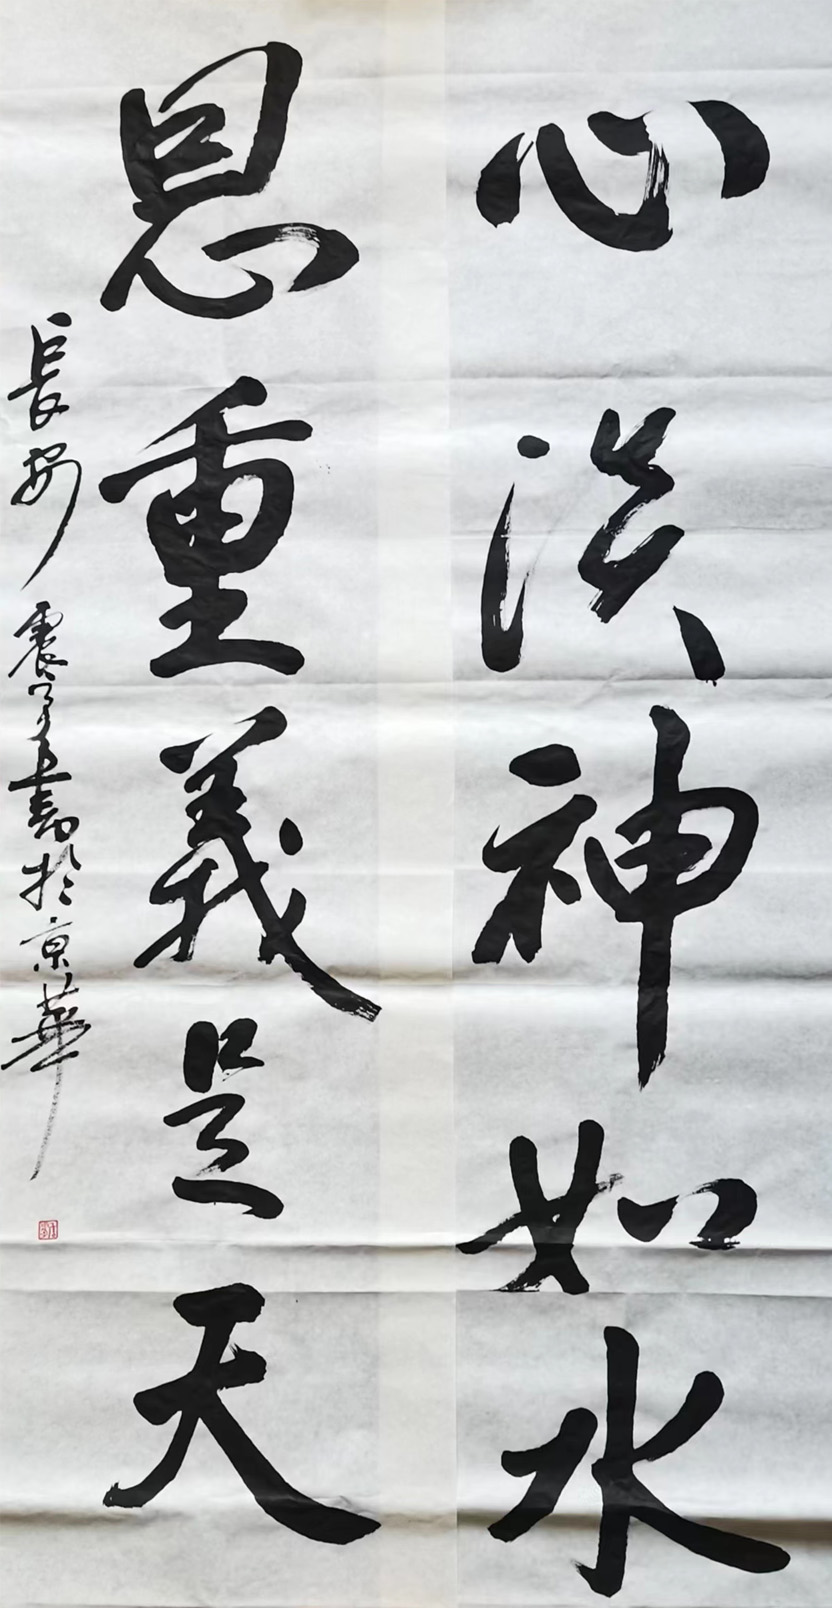 心淡神如水
恩重義是天
長安震子書於京華